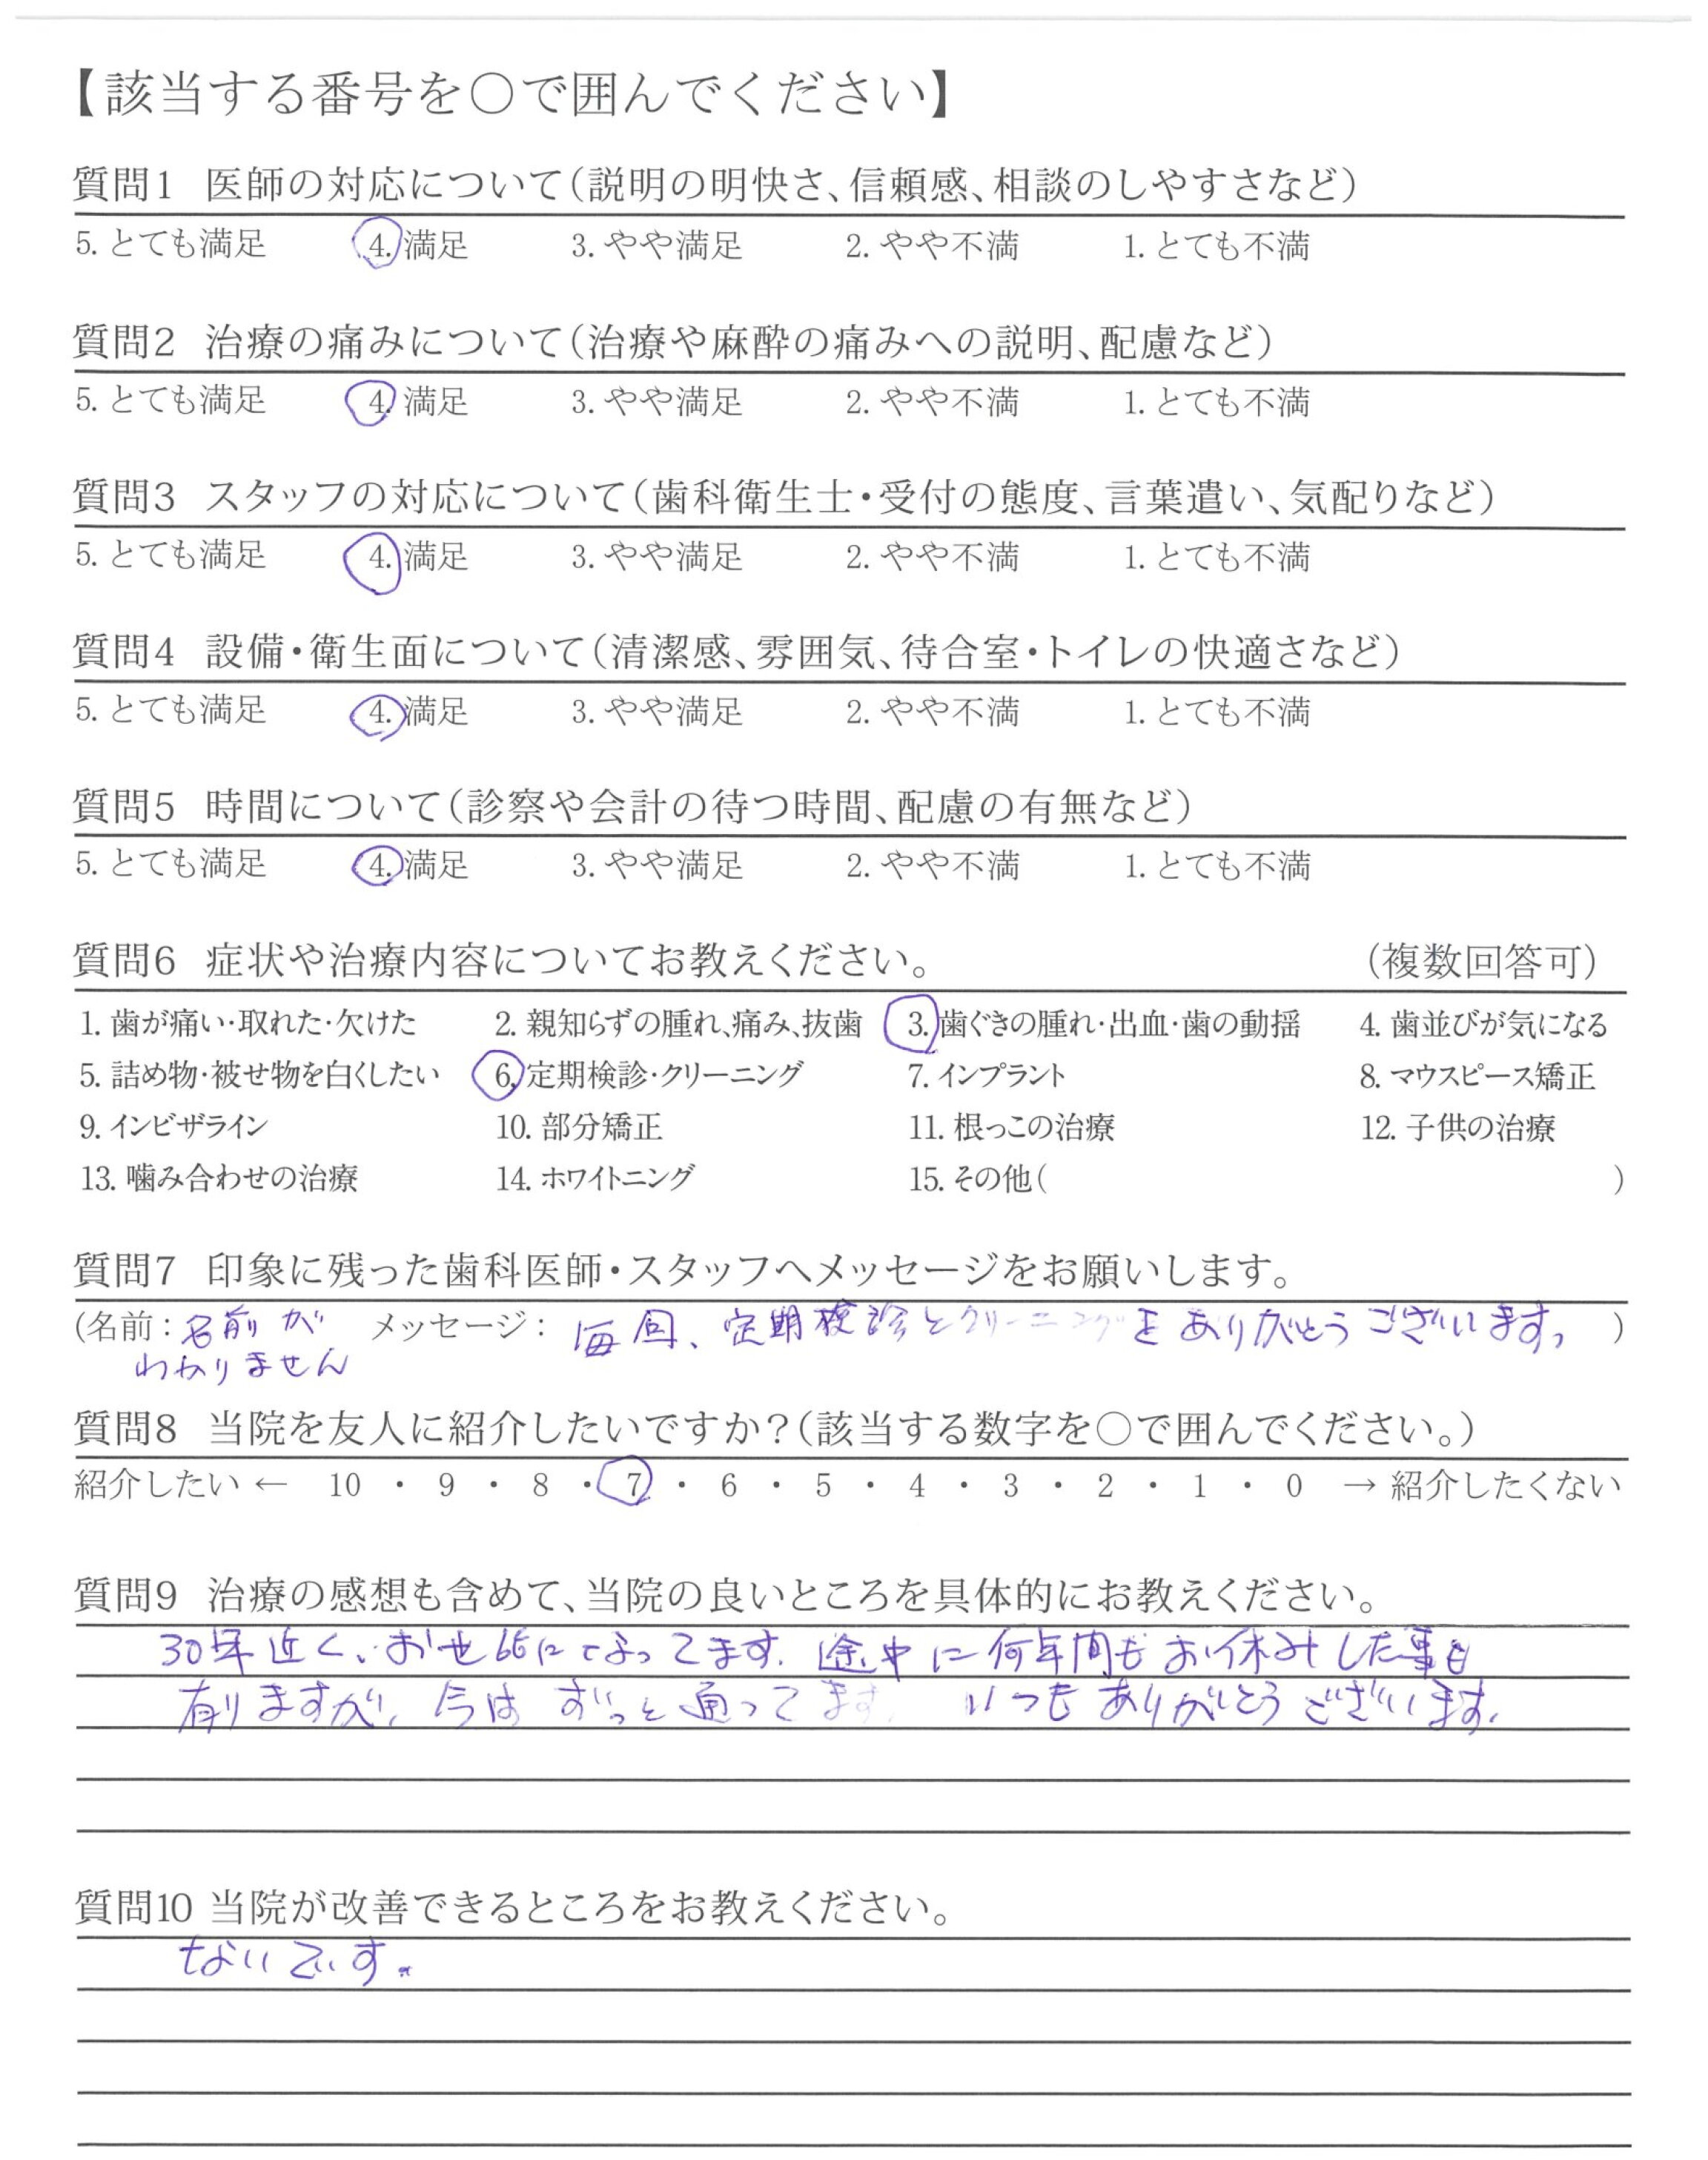 【該当する番号を○で囲んでください】
質問1 医師の対応について（説明の明快さ、信頼感、相談のしやすさなど）
5. とても満足 4. 満足 3. やや満足 2. やや不満 1. とても不満
質問2 治療の痛みについて（治療や麻酔の痛みへの説明、配慮など）
5. とても満足 4. 満足 3. やや満足 2. やや不満 1. とても不満
質問3 スタッフの対応について（歯科衛生士・受付の態度、言葉遣い、気配りなど）
5. とても満足 4. 満足 3. やや満足 2. やや不満 1. とても不満
質問4 設備・衛生面について（清潔感、雰囲気、待合室・トイレの快適さなど）
5. とても満足 4. 満足 3. やや満足 2. やや不満 1. とても不満
質問5 時間について（診察や会計の待つ時間、配慮の有無など）
5. とても満足 4. 満足 3. やや満足 2. やや不満 1. とても不満
質問6 症状や治療内容についてお教えください。 （複数回答可）
1. 歯が痛い・取れた・欠けた 2. 親知らずの腫れ、痛み、抜歯 3. 歯ぐきの腫れ・出血・歯の動揺 4. 歯並びが気になる
5. 詰め物・被せ物を白くしたい 6. 定期検診・クリーニング 7. インプラント 8. マウスピース矯正
9. インビザライン 10. 部分矯正 11. 根っこの治療 12. 子供の治療
13. 噛み合わせの治療 14. ホワイトニング 15. その他（ ）
質問7 印象に残った歯科医師・スタッフへメッセージをお願いします。
(名前：名前が メッセージ：毎回、定期検診とクリーニングをありがとうございます。)
わかりません
質問8 当院を友人に紹介したいですか？（該当する数字を○で囲んでください。）
紹介したい ← 10 ・ 9 ・ 8 ・ 7 ・ 6 ・ 5 ・ 4 ・ 3 ・ 2 ・ 1 ・ 0 → 紹介したくない
質問9 治療の感想も含めて、当院の良いところを具体的にお教えください。
30年近く、お世話になってます。途中に何年間もお休みした事も
有りますが、今はずっと通ってます。いつもありがとうございます。
質問10 当院が改善できるところをお教えください。
ないです。